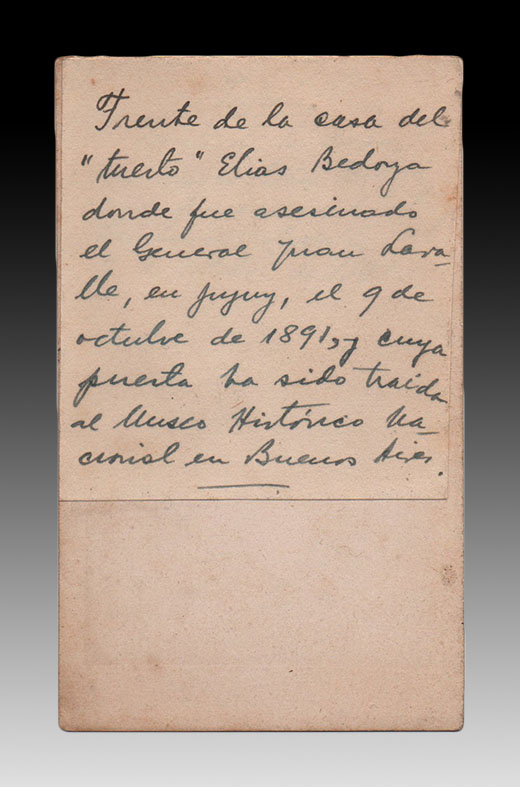 Frente de la casa del
"tuerto" Elias Bedoya
donde fue asesinado
el General Juan Lava-
lle, en Jujuy, el 9 de
octubre de 1891, y cuya
puerta ha sido traída
al Museo Histórico Na-
cional en Buenos Aires.